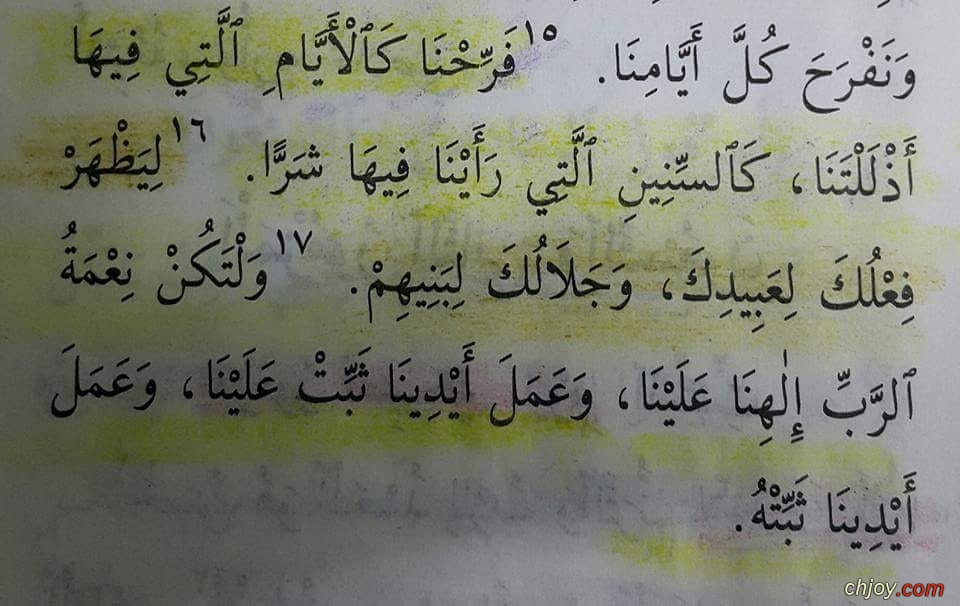 وَنَفْرَحَ كُلَّ أَيَّامِنَا. ١٥ فَرِّحْنَا كَٱلْأَيَّامِ ٱلَّتِي فِيهَا
أَذْلَلْتَنَا، كَٱلسِّنِينِ ٱلَّتِي رَأَيْنَا فِيهَا شَرًّا. ١٦ لِيَظْهَرْ
فِعْلُكَ لِعَبِيدِكَ، وَجَلَالُكَ لِبَنِيهِمْ. ١٧ وَلْتَكُنْ نِعْمَةُ
ٱلرَّبِّ إِلٰهِنَا عَلَيْنَا، وَعَمَلَ أَيْدِينَا ثَبِّتْ عَلَيْنَا، وَعَمَلَ
أَيْدِينَا ثَبِّتْهُ.
chjoy.com